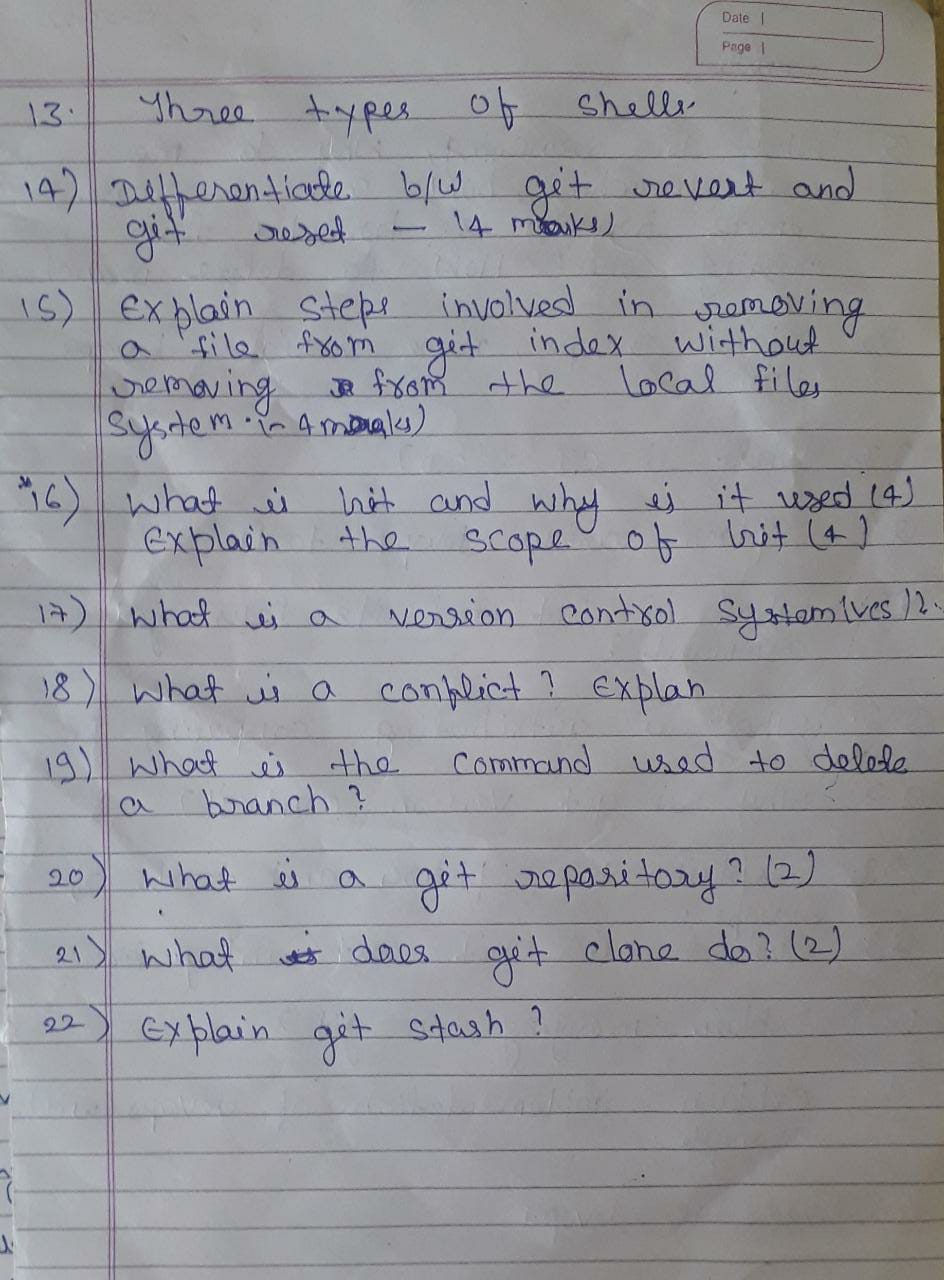 Date
Page
13. Three types of Shells
14) Differentiate b/w git revert and
git reset - 14 marks)
15) Explain Steps involved in removing
a file from git index without
removing from the local files
System. in 4 marks)
*16) What is hit and why is it used (4)
Explain the scope of hit (4)
17) What is a version control System (vcs) 2.
18) What is a conflict? Explan
19) What is the Command used to delete
a branch?
20) What is a git repository? (2)
21) What does git clone do? (2)
22) Explain git stash?